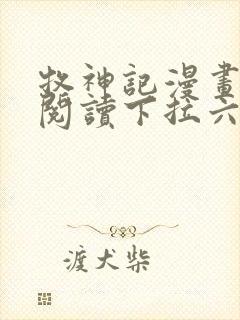 牧神記漫畫
閱讀下拉六
渡犬柴